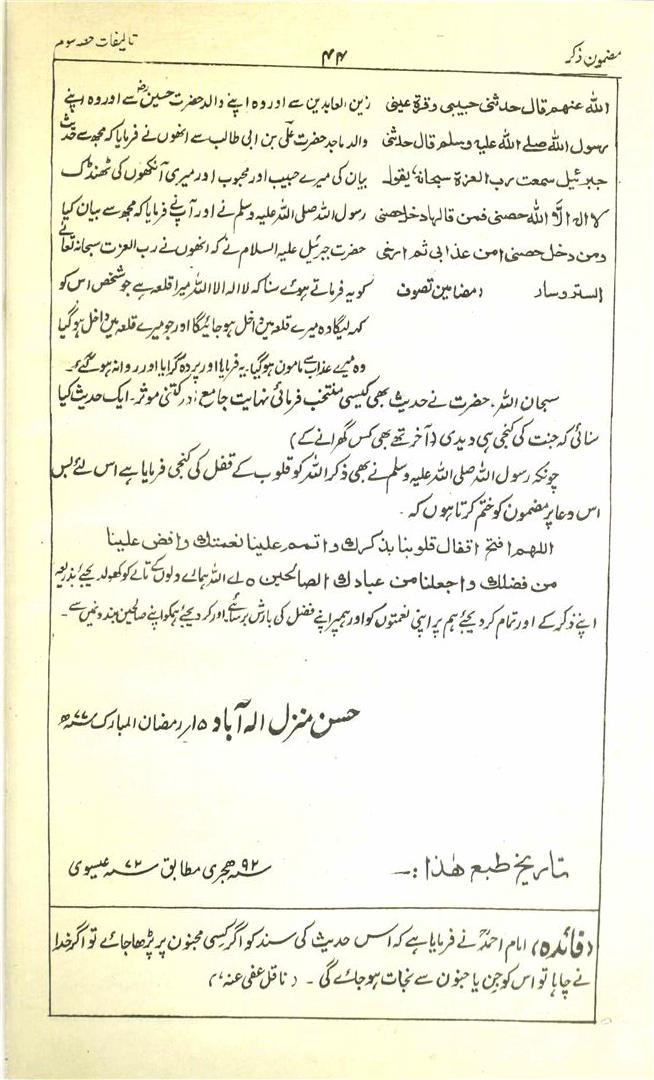 مضمون ذکر
۴۴
تالیفات حصہ سوم
الله عنهم قال حدثنی حبیبی وقرة عینی
رسول الله صلے الله علیه وسلم قال حدثنی
جبرئیل سمعت رب العزة سبحانه یقول
لا اله الا الله حصنی فمن قالها دخل حصنی
ومن دخل حصنی امن عذابی ثم ارخی
الستر وسار (مضامین تصوف
زین العابدین سے اور وہ اپنے والد حضرت حسینؓ سے اور وہ اپنے
والد ماجد حضرت علی بن ابی طالب سے انھوں نے فرمایا کہ مجھ سے حدیث
بیان کی میرے حبیب اور محبوب اور میری آنکھوں کی ٹھنڈک
رسول اللہ صلی اللہ علیہ وسلم نے اور آپ نے فرمایا کہ مجھ سے بیان کیا
حضرت جبرئیل علیہ السلام نے کہ انھوں نے رب العزت سبحانہ تعالیٰ
کو یہ فرماتے ہوئے سنا کہ لا الہ الا اللہ میرا قلعہ ہے جو شخص اس کو
کہہ لیگا وہ میرے قلعہ میں داخل ہو جائیگا اور جو میرے قلعہ میں داخل ہو گیا
وہ میرے عذاب سے مامون ہو گیا۔ یہ فرمایا اور پردہ گرایا اور روانہ ہو گئے۔
سبحان اللہ۔ حضرت نے حدیث بھی کیسی منتخب فرمائی نہایت جامع اور کتنی موثر۔ ایک حدیث کیا
سنائی کہ جنت کی کنجی ہی دیدی (آخر تھے بھی کس گھرانے کے)
چونکہ رسول اللہ صلی اللہ علیہ وسلم نے بھی ذکر اللہ کو قلوب کے قفل کی کنجی فرمایا ہے اس لئے بس
اس دعا پر مضمون کو ختم کرتا ہوں کہ۔
اللهم افتح اقفال قلوبنا بذکرك واتمم علینا نعمتك وافض علینا
من فضلك واجعلنا من عبادك الصالحین ٥ اے اللہ ہمارے دلوں کے تالے کو کھول دیجئے بذریعہ
اپنے ذکر کے اور تمام کر دیجئے ہم پر اپنی نعمتوں کو اور ہمپر اپنے فضل کی بارش برسائیے اور کر دیجئے ہمکو اپنے صالحین بندونمیں سے۔
حسن منزل الہ آباد ۱۵/ رمضان المبارک ۷۷ھ
تاریخ طبع ھٰذا :۔ ۹۲ ہجری مطابق ۷۲ عیسوی
(فائدہ) امام احمدؒ نے فرمایا ہے کہ اس حدیث کی سند کو اگر کسی مجنون پر پڑھا جائے تو اگر خدا
نے چاہا تو اس کو جن یا جنون سے نجات ہو جائے گی۔ (ناقل عفی عنہ)